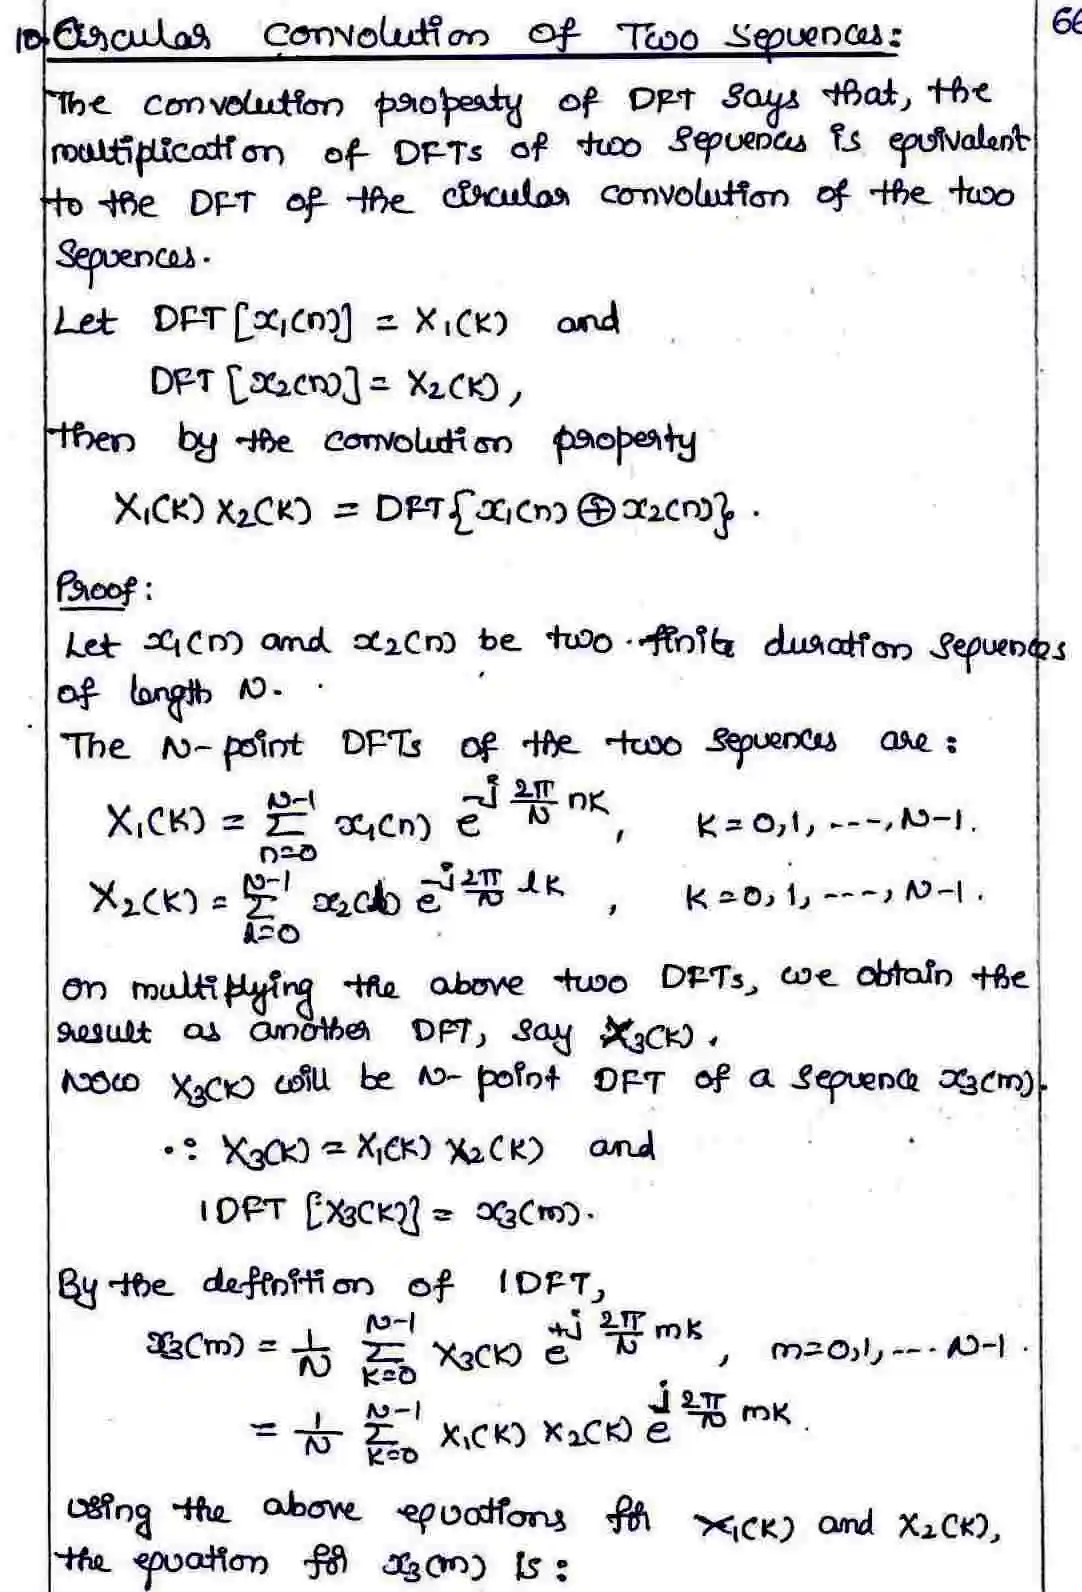 10. Circular Convolution of Two Sequences: 66
The convolution property of DFT says that, the
multiplication of DFTs of two sequences is equivalent
to the DFT of the circular convolution of the two
sequences.
Let DFT[x₁(n)] = X₁(K) and
DFT[x₂(n)] = X₂(K),
then by the convolution property
X₁(K) X₂(K) = DFT{x₁(n) ⊕ x₂(n)}.
Proof:
Let x₁(n) and x₂(n) be two finite duration sequences
of length N.
The N-point DFTs of the two sequences are:
X₁(K) = Σ_{n=0}^{N-1} x₁(n) e^{-j (2π/N) nK}, K=0,1, ----, N-1.
X₂(K) = Σ_{l=0}^{N-1} x₂(l) e^{-j (2π/N) lK}, K=0,1, ----, N-1.
on multiplying the above two DFTs, we obtain the
result as another DFT, say X₃(K).
Now X₃(K) will be N-point DFT of a sequence x₃(m).
∴ X₃(K) = X₁(K) X₂(K) and
IDFT [X₃(K)] = x₃(m).
By the definition of IDFT,
x₃(m) = 1/N Σ_{K=0}^{N-1} X₃(K) e^{+j (2π/N) mK}, m=0,1,---- N-1.
= 1/N Σ_{K=0}^{N-1} X₁(K) X₂(K) e^{j (2π/N) mK}.
using the above equations for X₁(K) and X₂(K),
the equation for x₃(m) is: